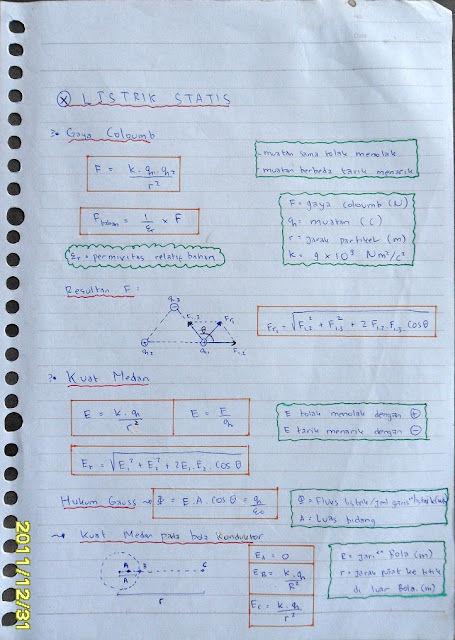 Date
(X) LISTRIK STATIS
Gaya Coloumb
F = k . q1 . q2 / r²
muatan sama tolak menolak
muatan berbeda tarik menarik
F bahan = 1/εr × F
F = gaya coloumb (N)
q = muatan (C)
r = jarak partikel (m)
k = 9 × 10⁹ Nm²/c²
εr = permivitas relatif bahan
Resultan F :
q3
F1,3
Fr1
θ
q2
q1
F1,2
Fr1 = √F1,2² + F1,3² + 2 F1,2 . F1,3 . cos θ
Kuat Medan
E = k . q / r²
E = F / q
E tolak menolak dengan ⊕
E tarik menarik dengan ⊖
Er = √E1² + E2² + 2E1 . E2 . cos θ
Hukum Gauss → Φ = E . A . cos θ = q / ε0
Φ = Fluks listrik / jml garis²
A = Luas bidang
Kuat Medan pada bola konduktor
A
B
C
R
r
EA = 0
EB = k . q / R²
EC = k . q / r²
R = jari² Bola (m)
r = jarak pusat ke titik
di luar Bola (m)
2011/12/31